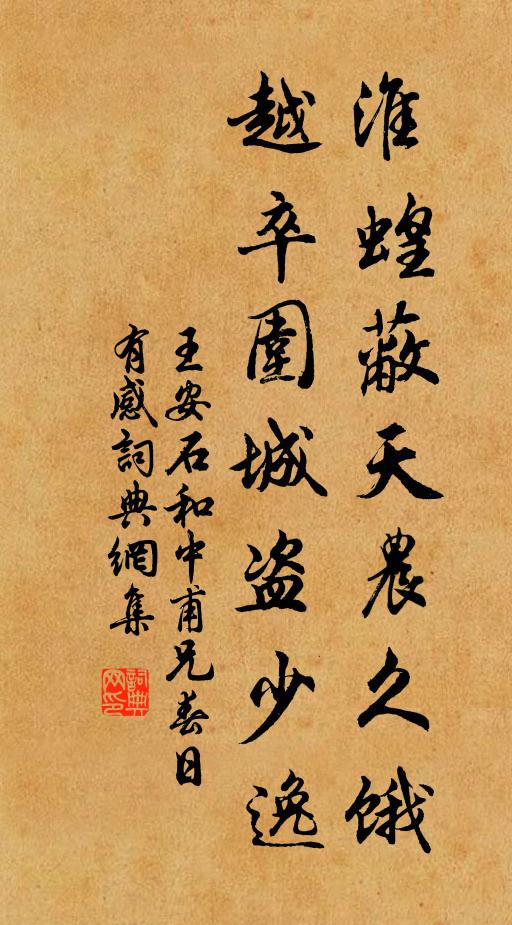 淮蝗蔽天農久餓
越卒圍城盜少逸
王安石和中甫兄春日
有感詞典網集
詞典
网印